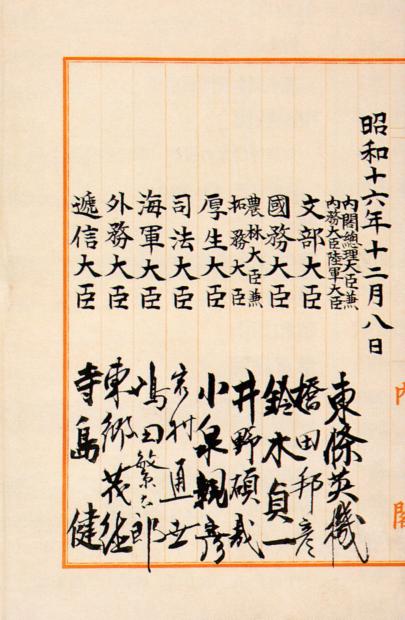 昭和十六年十二月八日
內閣總理大臣兼
內務大臣陸軍大臣 東條英機
文部大臣 橋田邦彦
國務大臣 鈴木貞一
農林大臣兼
拓務大臣 井野碩哉
厚生大臣 小泉親彦
司法大臣 岩村通世
海軍大臣 嶋田繁太郎
外務大臣 東郷茂徳
遞信大臣 寺島健
內閣